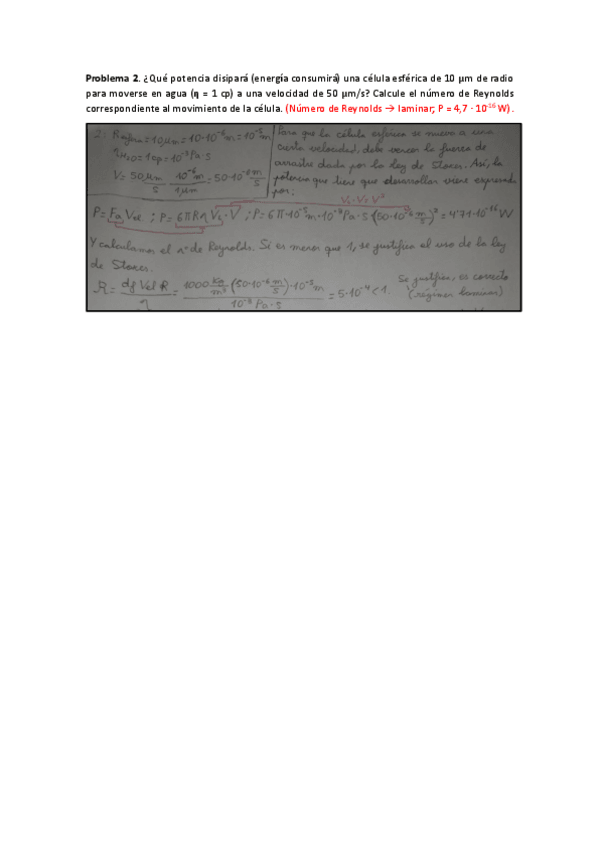 Problema 2. ¿Qué potencia disipará (energía consumirá) una célula esférica de 10 μm de radio
para moverse en agua (η = 1 cp) a una velocidad de 50 μm/s? Calcule el número de Reynolds
correspondiente al movimiento de la célula. (Número de Reynolds → laminar; P = 4,7 · 10⁻¹⁶ W).
2: Resfera = 10μm = 10·10⁻⁶m = 10⁻⁵m
ηH₂O = 1cp = 10⁻³ Pa·s
V = 50 μm/s · 10⁻⁶m/1μm = 50·10⁻⁶ m/s
Para que la célula esférica se mueva a una
cierta velocidad, debe vencer la fuerza de
arrastre dada por la ley de Stokes. Así, la
potencia que tiene que desarrollar viene expresada
por:
VL·V = V²
P = Fa Vel. ; P = 6πRη VL·V ; P = 6π·10⁻⁵m·10⁻³Pa·s (50·10⁻⁶ m/s)² = 4'71·10⁻¹⁶ W
Y calculamos el nº de Reynolds. Si es menor que 1, se justifica el uso de la ley
de Stokes.
R = df Vel R / η = 1000 Kg/m³ (50·10⁻⁶ m/s)·10⁻⁵m / 10⁻³ Pa·s = 5·10⁻⁴ < 1.
Se justifica, es correcto
(régimen laminar)